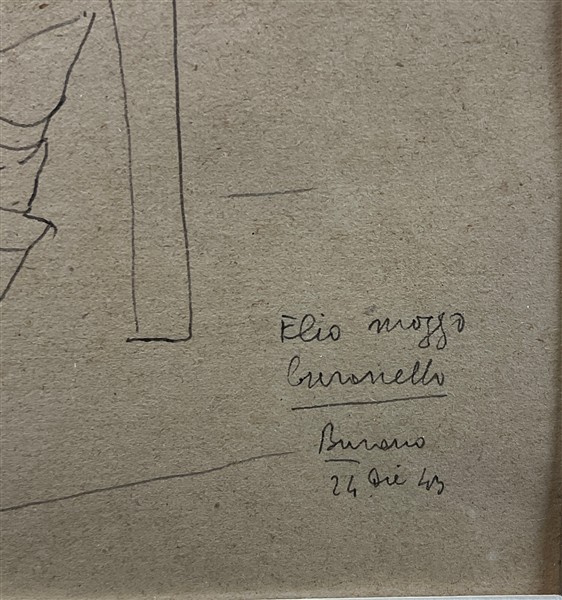 Elio mozzo
buranello
Burano
24 Dic 43